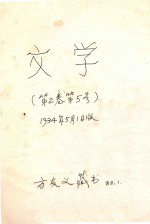 文学
(第2卷第5号)
1934年5月1日版
方友义藏书